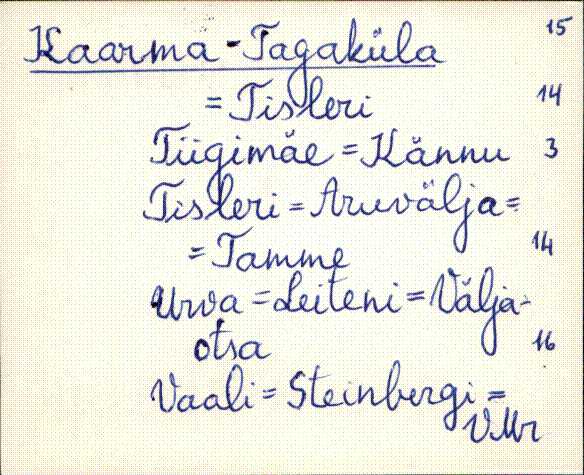 Kaarma-Tagaküla 15
= Tisleri 14
Tiigimäe = Kännu 3
Tisleri = Aruvälja =
= Tamme 14
Urva = Leiteni = Välja-
otsa 16
Vaali = Steinbergi =
VMr